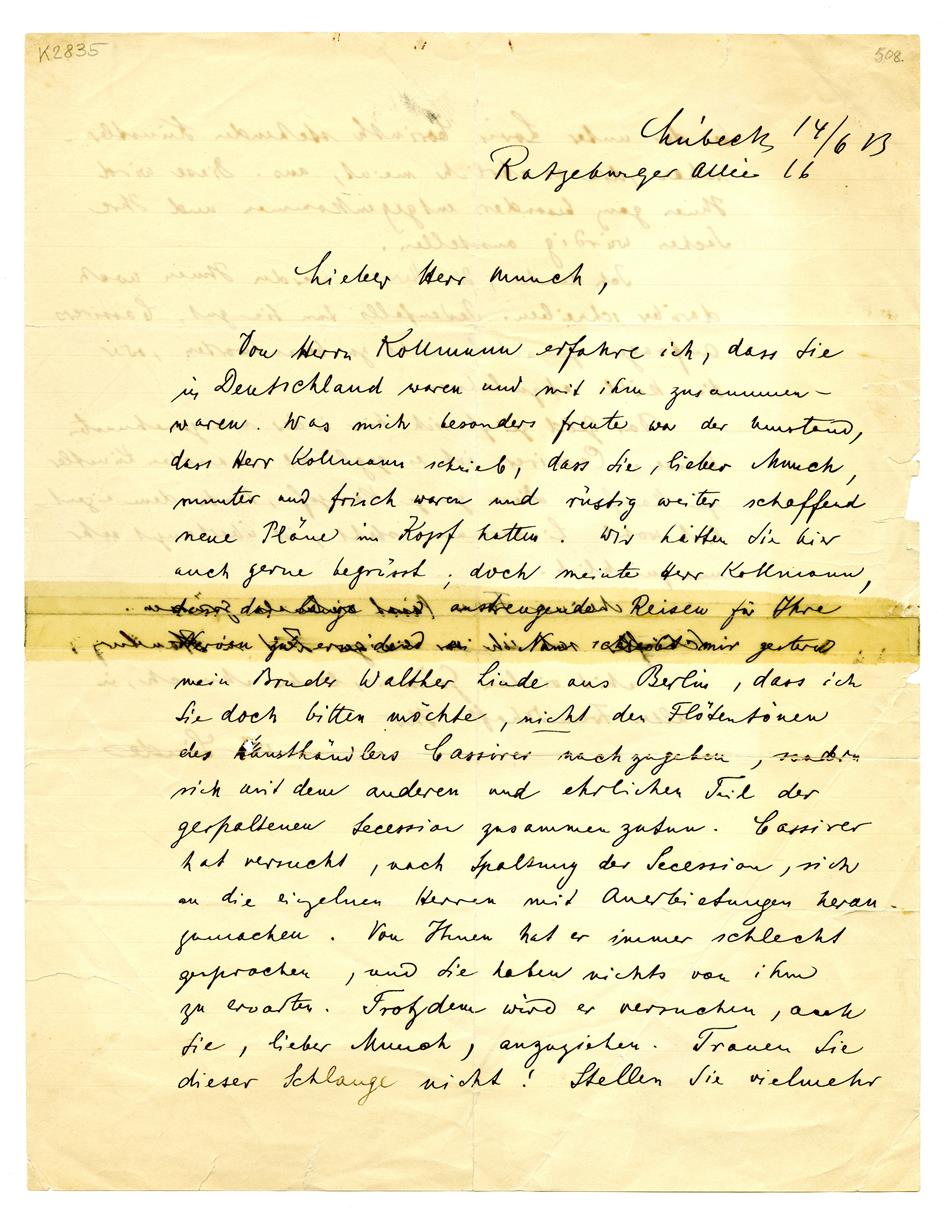 K2835
508.
Lübeck 14/6 13
Ratzeburger Allee 16
Lieber Herr Munch,
Von Herrn Kollmann erfahre ich, dass Sie
in Deutschland waren und mit ihm zusammen-
waren. Was mich besonders freute war der Umstand,
dass Herr Kollmann schrieb, dass Sie, lieber Munch,
munter und frisch waren und rüstig weiter schaffend
neue Pläne im Kopf hatten. Wir hätten Sie hier
auch gerne begrüsst; doch meinte Herr Kollmann,
anstrengenden Reisen für Ihre
mir gestern
mein Bruder Walther Linde aus Berlin, dass ich
Sie doch bitten möchte, nicht den Flötentönen
des Kunsthändlers Cassirer nachzugeben, sondern
sich mit dem anderen und ehrlichen Teil der
gespaltenen Secession zusammenzutun. Cassirer
hat versucht, nach Spaltung der Secession, sich
an die einzelnen Herren mit Anerbietungen heran-
zumachen. Von Ihnen hat er immer schlecht
gesprochen, und Sie haben nichts von ihm
zu erwarten. Trotzdem wird er versuchen, auch
Sie, lieber Munch, anzuziehen. Trauen Sie
dieser Schlange nicht! Stellen Sie vielmehr